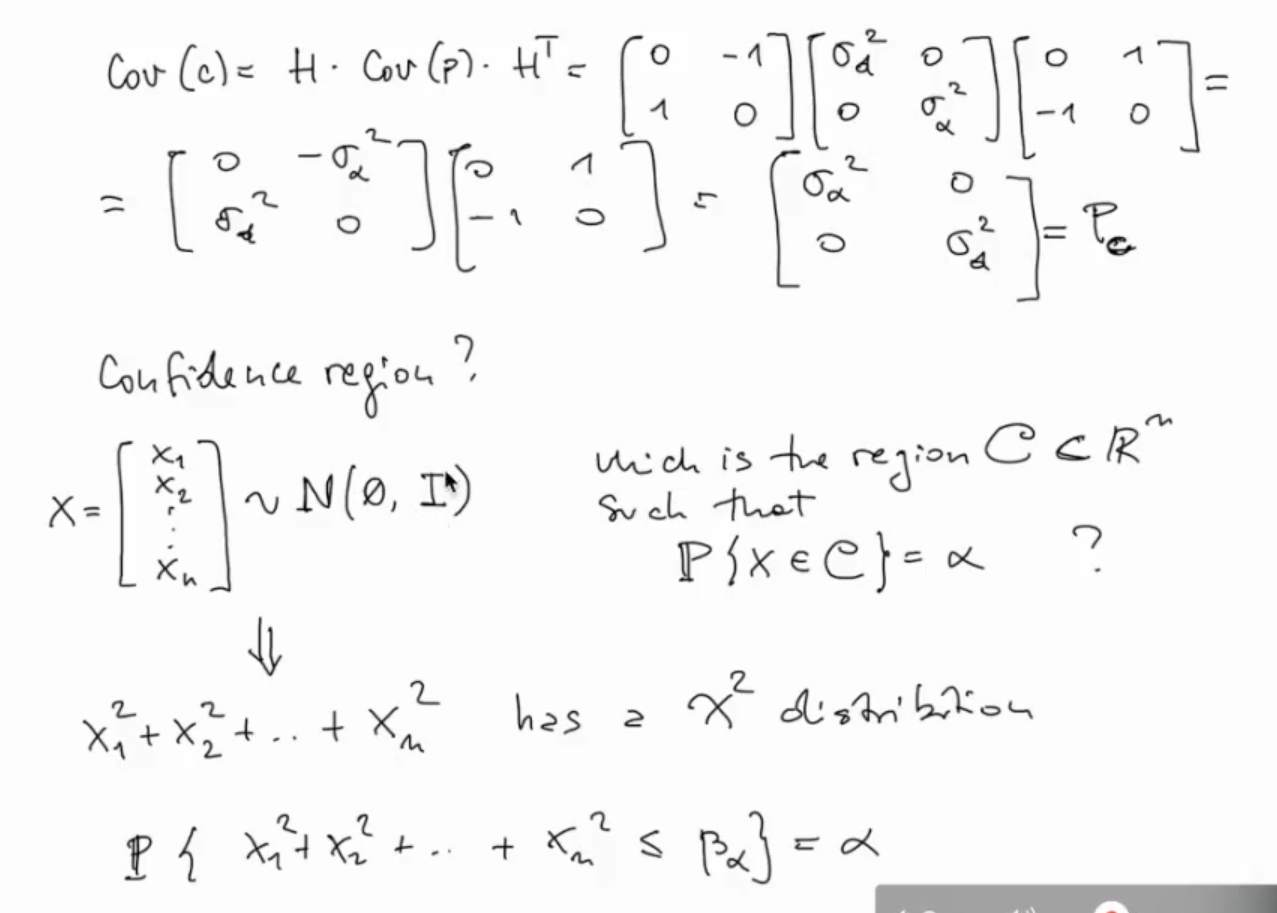 Cov(c) = H · Cov(p) · Hᵀ = [0 -1; 1 0] [σ_d² 0; 0 σ_α²] [0 1; -1 0] =
= [0 -σ_α²; σ_d² 0] [0 1; -1 0] = [σ_α² 0; 0 σ_d²] = P_c
Confidence region?
X = [x₁ x₂ ⋮ xₙ] ~ N(0, I)
which is the region C ⊂ ℝⁿ
such that
ℙ{X ∈ C} = α ?
⇓
x₁² + x₂² + .. + xₙ² has a χ² distribution
ℙ{ x₁² + x₂² + .. + xₙ² ≤ β_α} = α